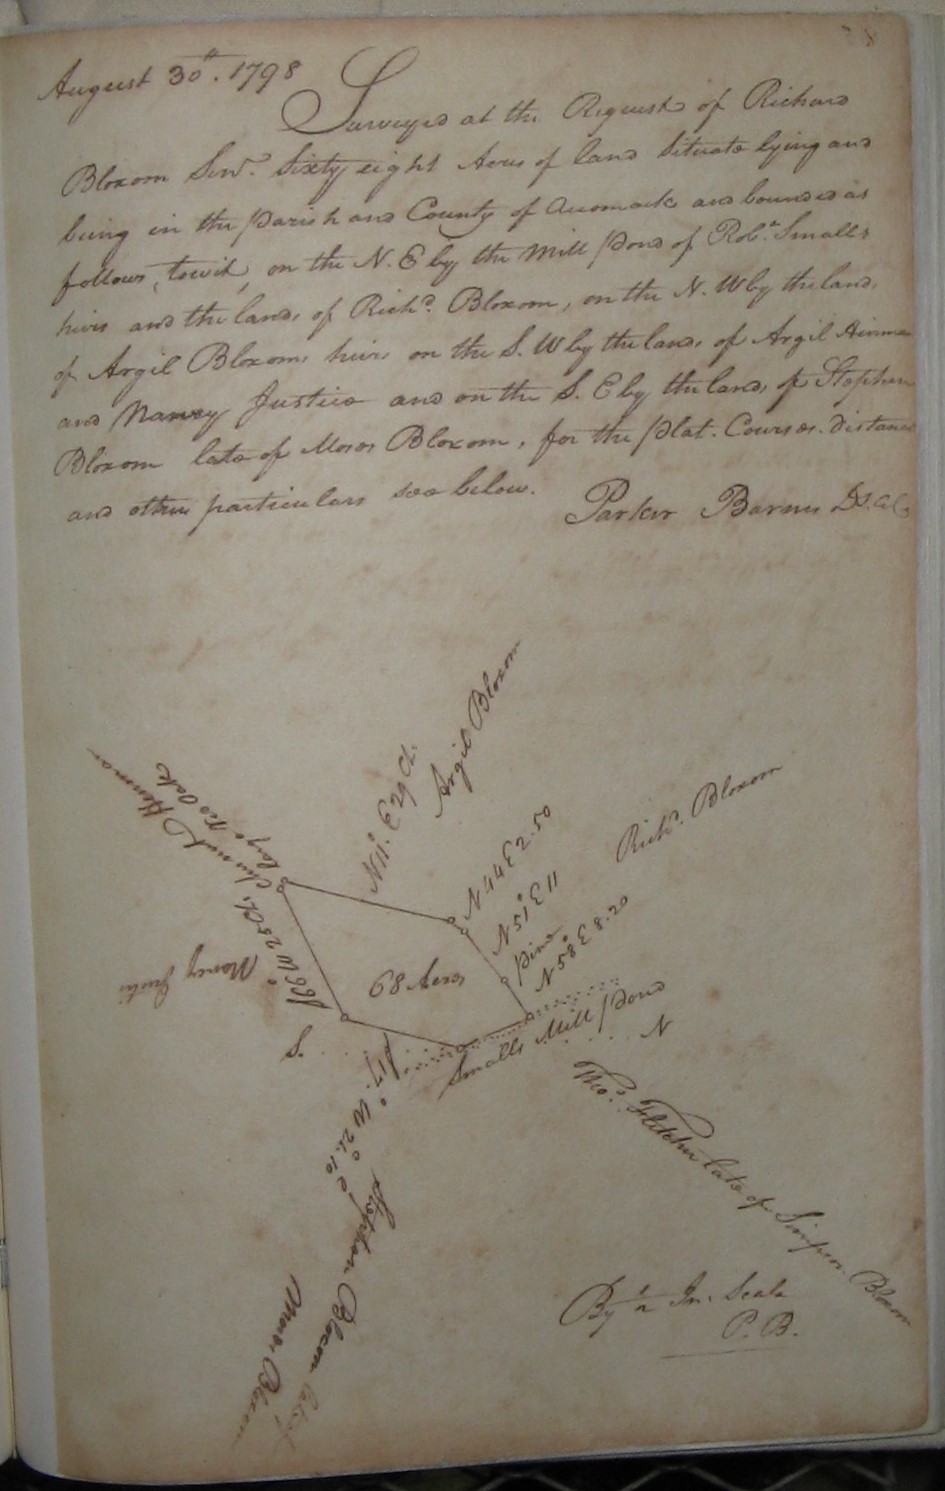 August 30th. 1798
Surveyed at the Request of Richard
Bloxom Senr. Sixty eight Acres of land Situate lying and
being in the Parish and County of Accomack and bounded as
follows, towit, on the N. E by the Mill Pond of Robt. Smalls
heirs and the lands of Richd. Bloxom, on the N. W by the lands
of Argil Bloxoms heirs on the S. W by the lands of Argil Hinman
and Nancy Justice and on the S. E by the lands of Stephen
Bloxom late of Moses Bloxom, for the Plat. Courses. distance
and other particulars see below.
Parker Barnes
Argil Bloxom
N 11° E 29 Ch.
N 44 E 2.50
Richd. Bloxom
N 51° E 11
Pine
N 58° E 8.20
Hinman
large red Oak
S 66° W 25 Ch.
Nancy Justice
68 Acres
S.
N
Smalls Mill Pond
S 17° W 21.10
Thos. Fletcher late of Simpson Bloxom
Stephen Bloxom late of
Moses Bloxom
By a In. Scale
P. B.